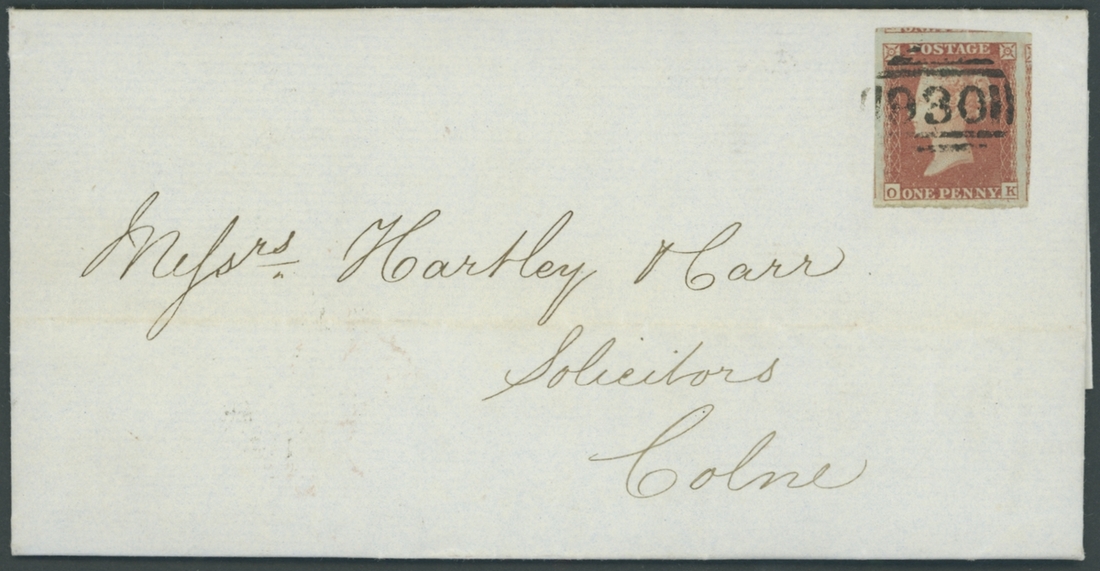 POSTAGE
930
O ONE PENNY K
Messrs Hartley & Carr
Solicitors
Colne